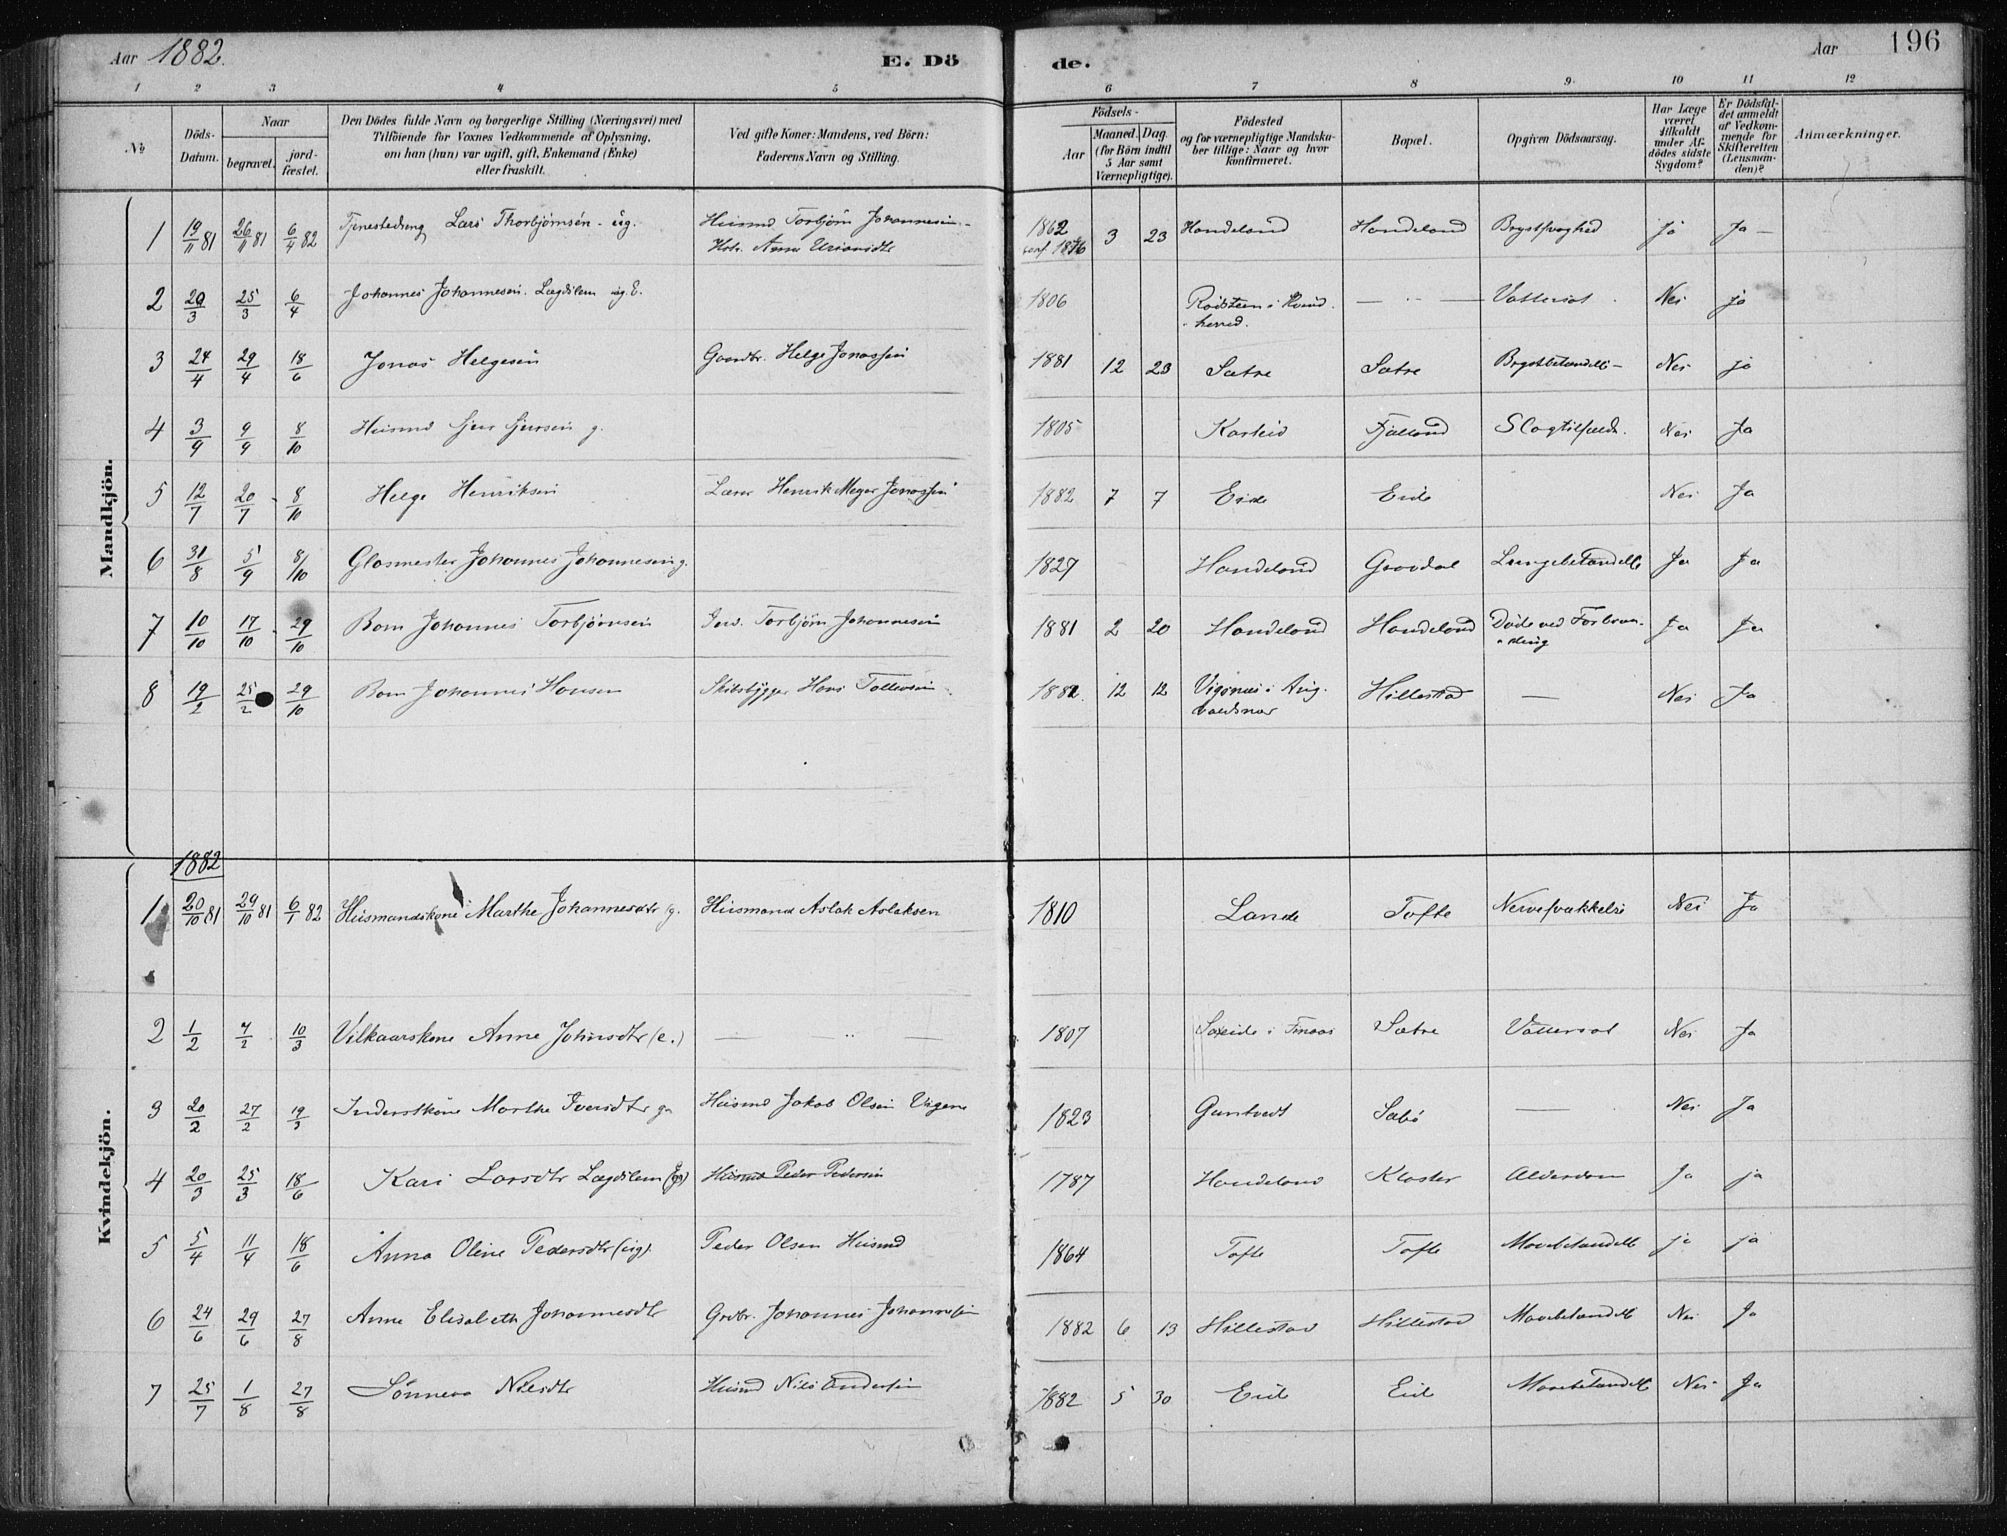 Aar 1882. E. Dö de. Aar 196
1 2 3 4 5 6 7 8 9 10 11 12
No Döds-Datum. Naar begravet. jord-fæstet. Den Dödes fulde Navn og borgerlige Stilling (Næringsvei) med Tilföiende for Voxnes Vedkommende af Oplysning, om han (hun) var ugift, gift, Enkemand (Enke) eller fraskilt. Ved gifte Koner: Mandens, ved Börn: Faderens Navn og Stilling. Födsels- Aar Maaned. Dag. (for Börn indtil 5 Aar samt Værnepligtige). Födested og for værnepligtige Mandskaber tillige: Naar og hvor konfirmeret. Bopæl. Opgiven Dödsaarsag. Har Læge været tilkaldt under Afdödes sidste Sygdom? Er Dödsfaldet anmeldt af Vedkommende for Skifteretten (Lensmanden)? Anmærkninger.
Mandkjön.
1 19/11 81 26/11 81 6/4 82 Tjenestedreng Lars Thorbjørnsen - ug. Husmd Torbjörn Johannesen - 1862 3 23 Handeland Handeland Brystsvaghed ja Ja -
Anna conf 1876
2 20/3 25/3 6/4 Johannes Johannesen. Lægdslem ug. E. 1806 i Kvind- — " — Vattersot. Nei ja
herred.
3 24/4 29/4 18/6 Jonas Helgesen Gaardbr. Helge Jonassen 1881 12 23 Sætre Sætre Brystbetændelse - Nei ja
4 3/9 9/9 8/10 Husmd g. 1805 Fjælland Slagtilfælde. Nei Ja
5 12/7 20/7 8/10 Helge Henriksen Lærer Henrik Meyer Jonassen 1882 7 7 Eide Eide Nei Ja
6 31/8 5/9 8/10 Glasmester Johannes Johannesen g. 1827 Handeland Lungebetændelse Ja Ja
7 10/10 17/10 29/10 Barn Johannes Torbjörnsen Torbjörn Johannesen 1881 2 20 Handeland Handeland Døde ved Forbræn-ding Ja Ja
8 19/2 25/2 29/10 Barn Johannes Hansen Skibsbygger Hans Tollevsen 1882 12 12 Vigsnes i Aug-valdsnæs Hillestad — Nei Ja
Kvindekjön.
1882
1 20/10 81 29/10 81 6/1 82 Husmandskone Marthe Johannesdtr g. Husmand Aslak Aslaksen 1810 Lande Tofte Nervesvækkelse Nei Ja
2 1/2 7/2 10/3 Vilkaarskone Anne Johnsdtr (e.) — " — 1807 i Finaas Sætre Vattersot Nei Ja
3 20/2 27/2 19/3 Inderstkone Marthe Iversdtr g. Husmd Jakob Olsen 1823 Gurstvedt Sæbø — Nei Ja
4 20/3 25/3 18/6 Kari Larsdtr Lægdslem Husmd Peder Pedersen 1787 Handeland Kloster Alderdom Ja ja
5 5/4 11/4 18/6 Anna Oline Pedersdtr (ug). Peder Olsen Husmd 1864 Tofte Tofte Mavebetændelse ja ja
6 24/6 29/6 27/8 Anne Elisabeth Johannesdtr Grdbr. Johannes Johannessen 1882 6 13 Hillestad Hillestad Mavebetændelse Nei Ja
7 25/7 1/8 27/8 Sønneva Nilsdtr Husmd Nils Andersen 1882 5 30 Eide Eide Mavebetændelse Nei Ja